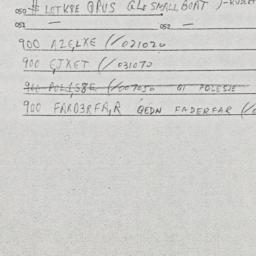 050 # LOTKSE OPUS GL SMALL BOAT
051 — 052 —
900 AZELXE (/021020
900 EJXET (/031070
900 POLISSE (/007050 GI POLESIE
900 FARD3RFA,R GEDN FADERFAR (/0